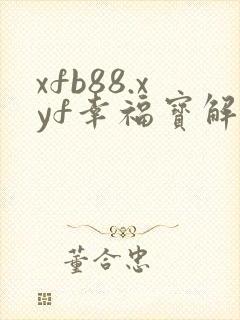 xfb88.x
yf幸福宝解
董合忠